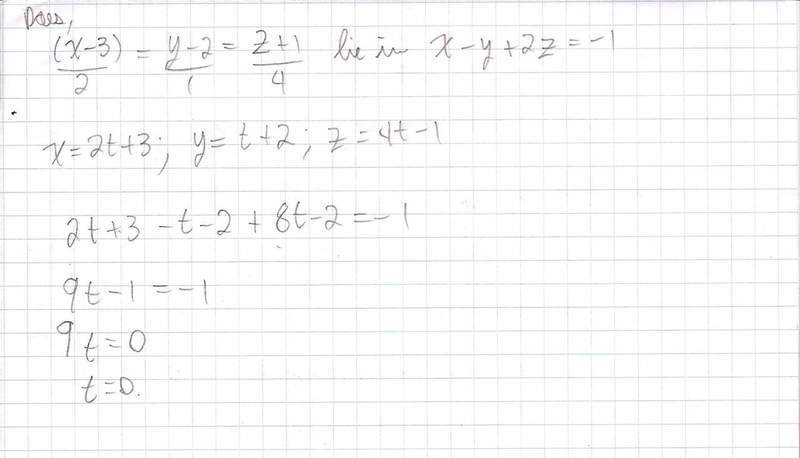 Does,
(x-3)/2 = y-2/1 = z+1/4 lie in x-y+2z=-1
x=2t+3; y=t+2; z=4t-1
2t+3-t-2+8t-2=-1
9t-1=-1
9t=0
t=0.